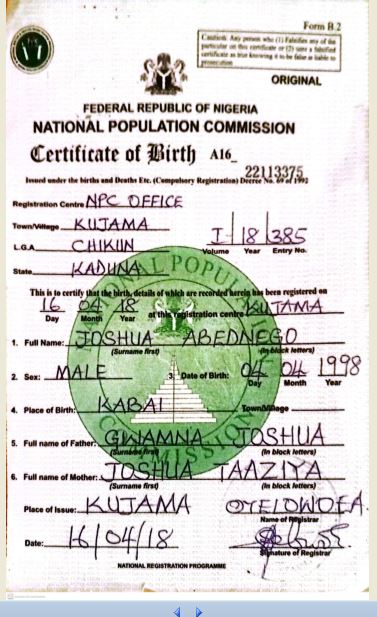 Form B.2
Caution: Any person who (1) Falsifies any of the
particular on this certificate or (2) uses a falsified
certificate as true knowing it to be false is liable to
prosecution
ORIGINAL
FEDERAL REPUBLIC OF NIGERIA
NATIONAL POPULATION COMMISSION
Certificate of Birth A16_ 22113375
Issued under the births and Deaths Etc. (Compulsory Registration) Decree No. 69 of 1992
Registration Centre NPC OFFICE
Town/Village KUJAMA
I 18 385
L.G.A CHIKUN
Volume Year Entry No.
State KADUNA
This is to certify that the birth, details of which are recorded herein has been registered on
16 04 18 at this registration centre KUJAMA
Day Month Year
1. Full Name: JOSHUA ABEDNEGO
(Surname first) (In block letters)
2. Sex: MALE 3. Date of Birth: 04 04 1998
Day Month Year
4. Place of Birth: KABAI Town/Village
5. Full name of Father: GWAMNA JOSHUA
(Surname first) (In block letters)
6. Full name of Mother: JOSHUA TAAZIYA
(Surname first) (In block letters)
Place of Issue: KUJAMA
Name of Registrar
Date: 16/04/18
Signature of Registrar
NATIONAL REGISTRATION PROGRAMME